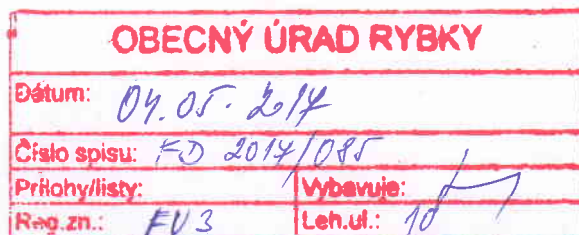 OBECNÝ ÚRAD RYBKY
Dátum: 04.05.2017
Číslo spisu: FD 2017/085
Prílohy/listy: Vybavuje:
Reg.zn.: FV3 Leh.ul.: 10